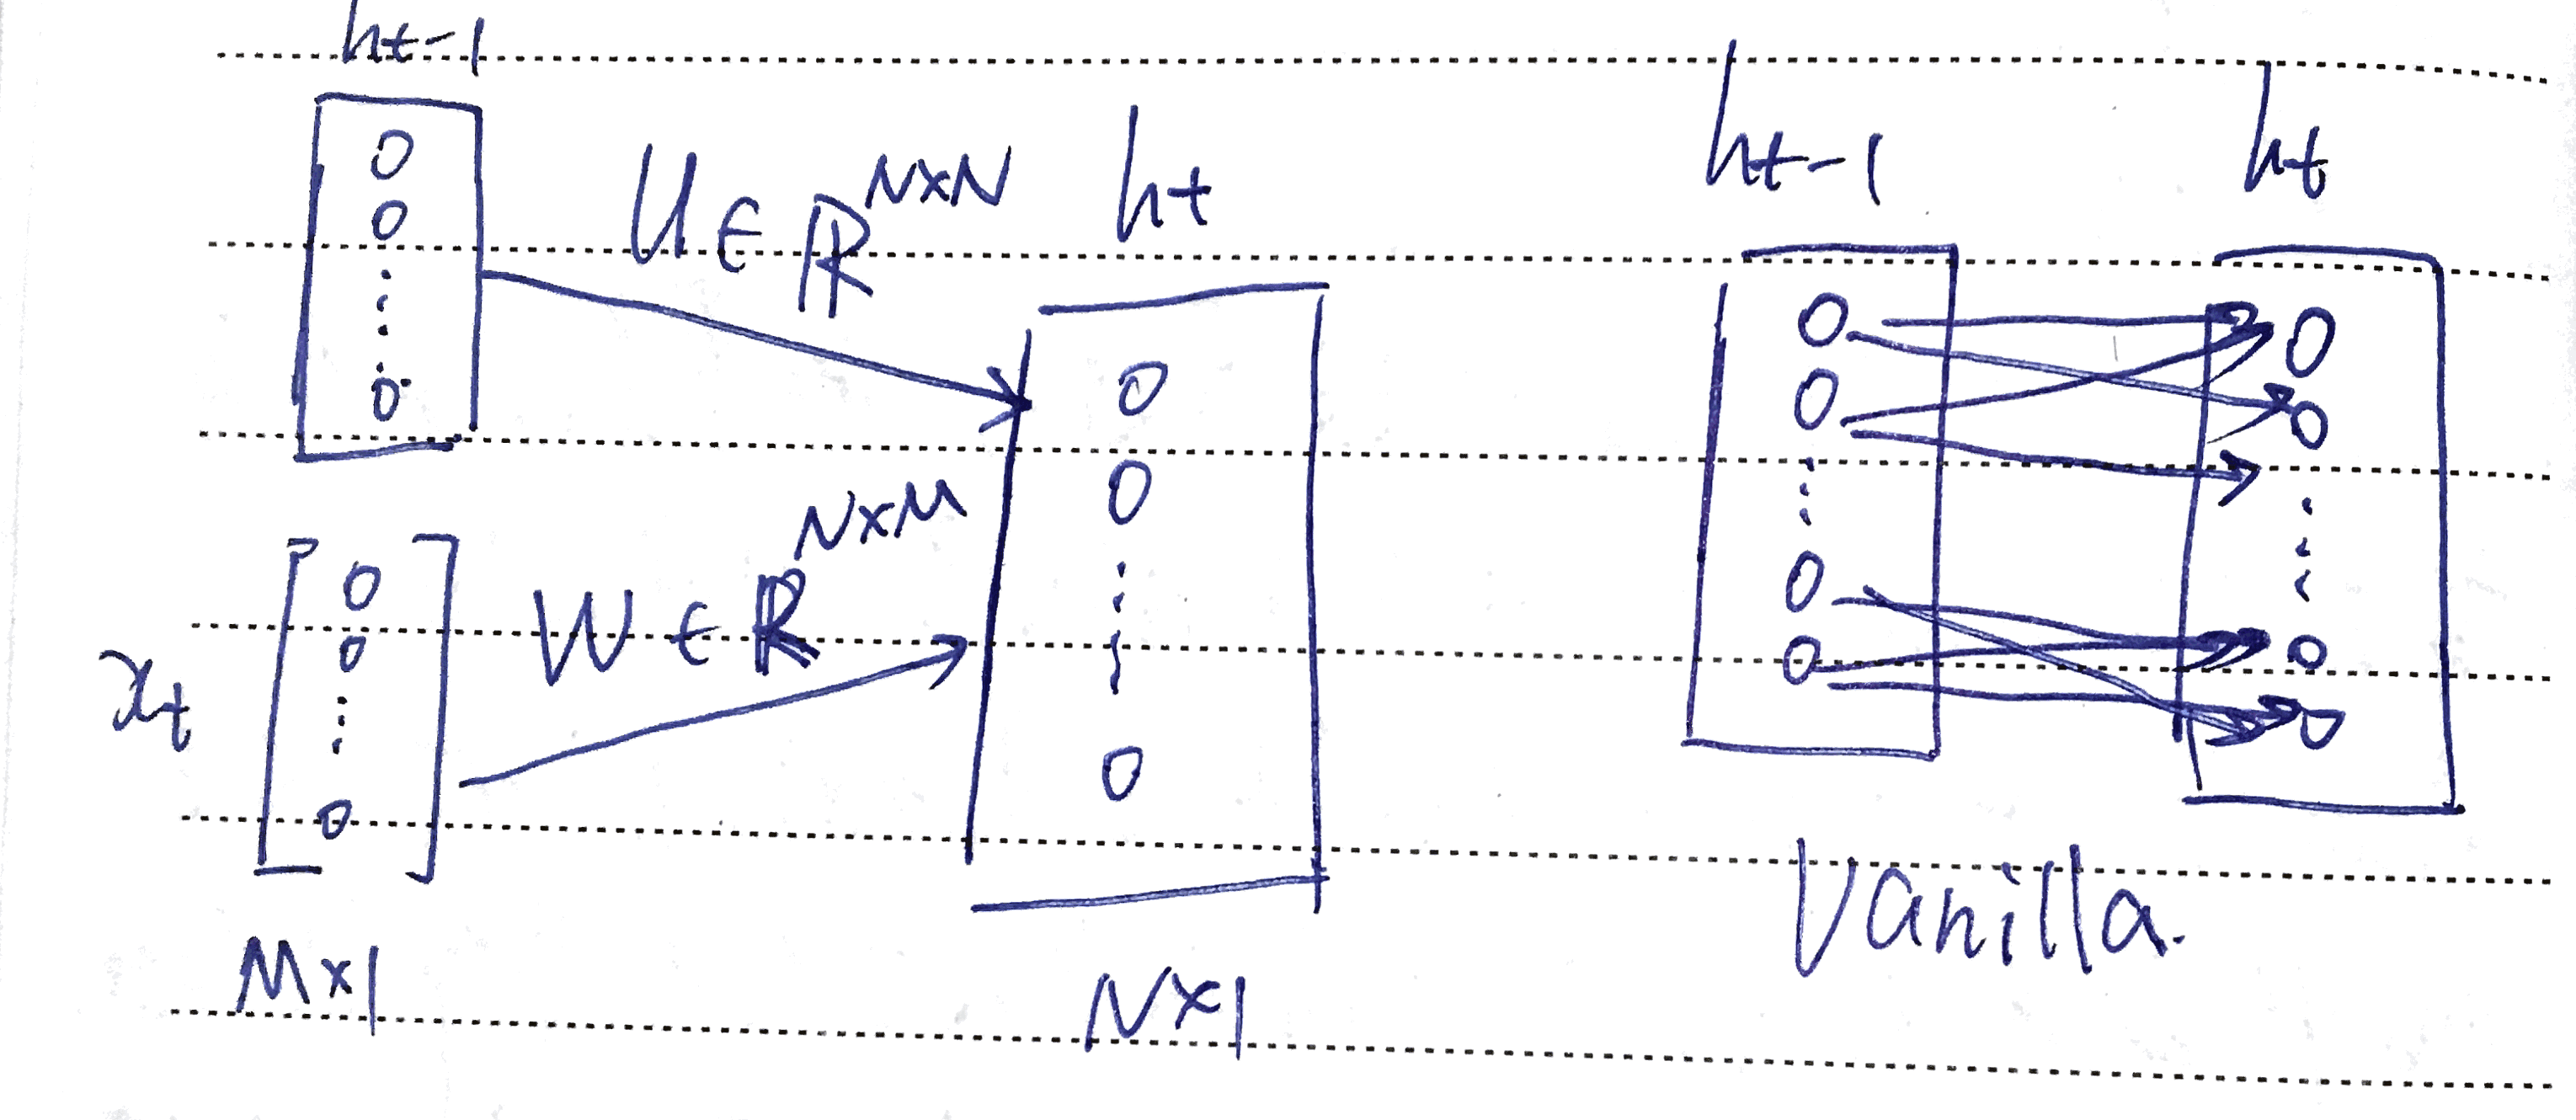 ht-1
U ∈ ℝ^N×N
ht
xt
W ∈ ℝ^N×M
M×1
N×1
ht-1
ht
Vanilla.